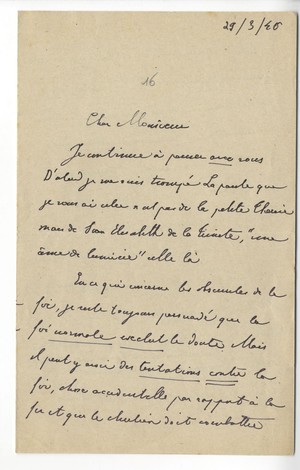 29/3/46
16
Cher Monsieur
Je continue à penser avec vous
D'abord je me suis trompé La parole que
je vous ai citée n'est pas de la petite Thérèse
mais de Sœur Elisabeth de la Trinité, "une
âme de lumière" celle là
En ce qui concerne les obscurités de la
foi, je reste toujours persuadé que la
foi normale exclut le doute Mais
il peut y avoir des tentations contre la
foi, chose accidentelle par rapport à la
foi et que le chrétien doit combattre